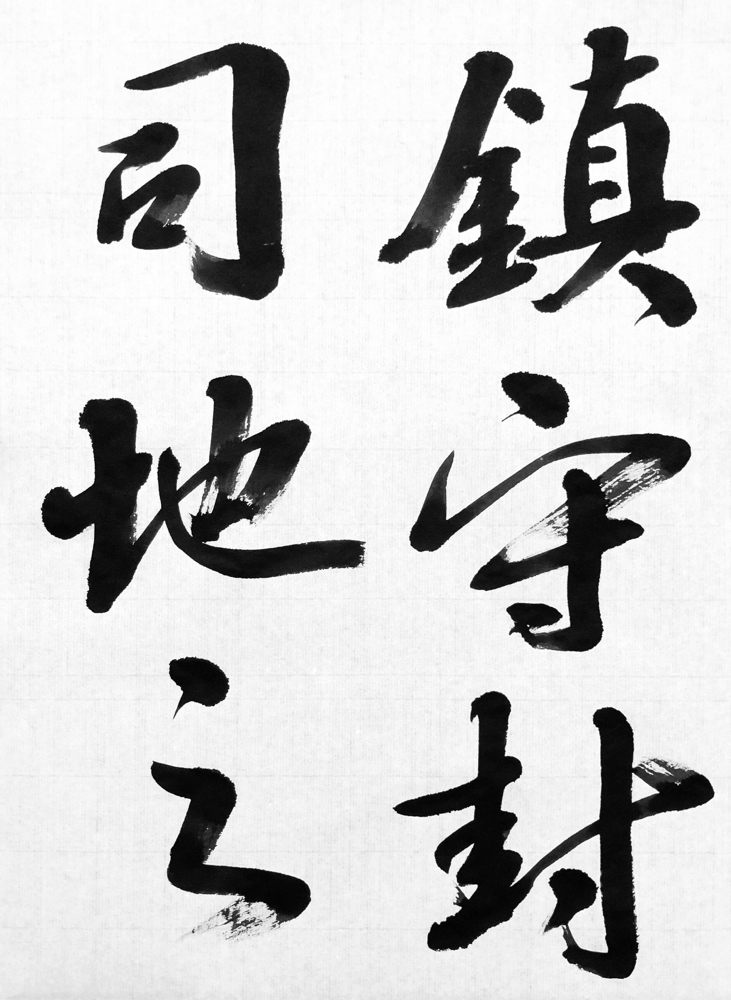 鎮守封
司地之